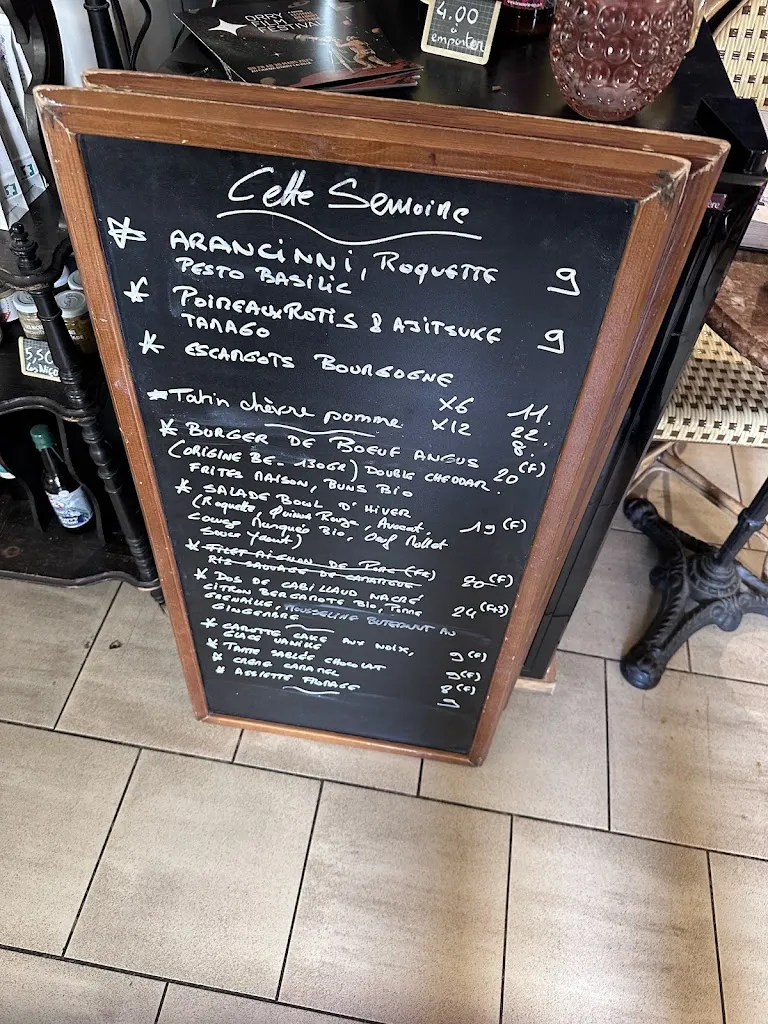 ORRY
FILM
FESTIVAL
4.00
à
emporter
5,50
Cette Semaine
ARANCINNI, ROQUETTE 9
PESTO BASILIC
POIREAUX ROTIS & AJITSUKE 9
TAMAGO
ESCARGOTS BOURGOGNE
X6 11.
X12 22.
Tatin chèvre pomme 8.
BURGER DE BOEUF ANGUS 20 (F)
(ORIGINE BE - 130GR) DOUBLE CHEDDAR.
FRITES MAISON, BUNS BIO
SALADE BOWL D'HIVER 19 (F)
(Roquette, Quinoa Rouge, Avocat,
Courge Bio, Oeuf Mollet
Sauce Yaourt)
FILET MIGNON DE PORC (FR) 20 (F)
RIZ SAUVAGE DE CAMARGUE
DOS DE CABILLAUD NACRÉ 24
CITRON BERGAMOTE BIO, POMME
GRENAILLE, MOUSSELINE BUTERNUT AU
GINGEMBRE
CAROTTE CAKE AUX NOIX, 9 (F)
GLACE VANILLE
TARTE SABLÉE CHOCOLAT 9 (F)
CREME CARAMEL 8 (F)
ASSIETTE FROMAGE 9